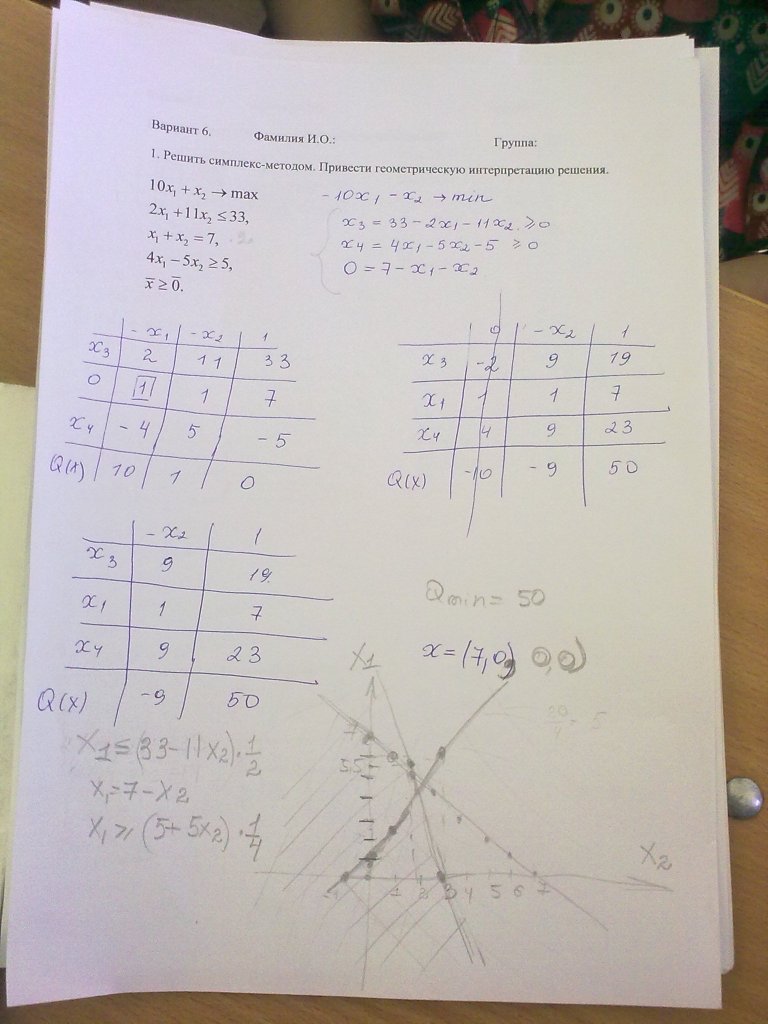 Вариант 6. Фамилия И.О.: Группа:
1. Решить симплекс-методом. Привести геометрическую интерпретацию решения.
10x₁ + x₂ → max
2x₁ + 11x₂ ≤ 33,
x₁ + x₂ = 7,
4x₁ − 5x₂ ≥ 5,
x̄ ≥ 0̄.
-10x₁ - x₂ → min
x₃ = 33 - 2x₁ - 11x₂ ≥ 0
x₄ = 4x₁ - 5x₂ - 5 ≥ 0
0 = 7 - x₁ - x₂
-x₁ -x₂ 1
x₃ 2 11 33
0 1 1 7
x₄ -4 5 -5
Q(x) 10 1 0
0 -x₂ 1
x₃ -2 9 19
x₁ 1 1 7
x₄ 4 9 23
Q(x) -10 -9 50
-x₂ 1
x₃ 9 19
x₁ 1 7
x₄ 9 23
Q(x) -9 50
Qmin = 50
x = (7,0, 0,0)
x₁ ≤ (33 - 11x₂) · 1/2
x₁ = 7 - x₂
x₁ ≥ (5 + 5x₂) · 1/4
X₁
7
5.5
-1 1 2 3 4 5 6 7
X₂